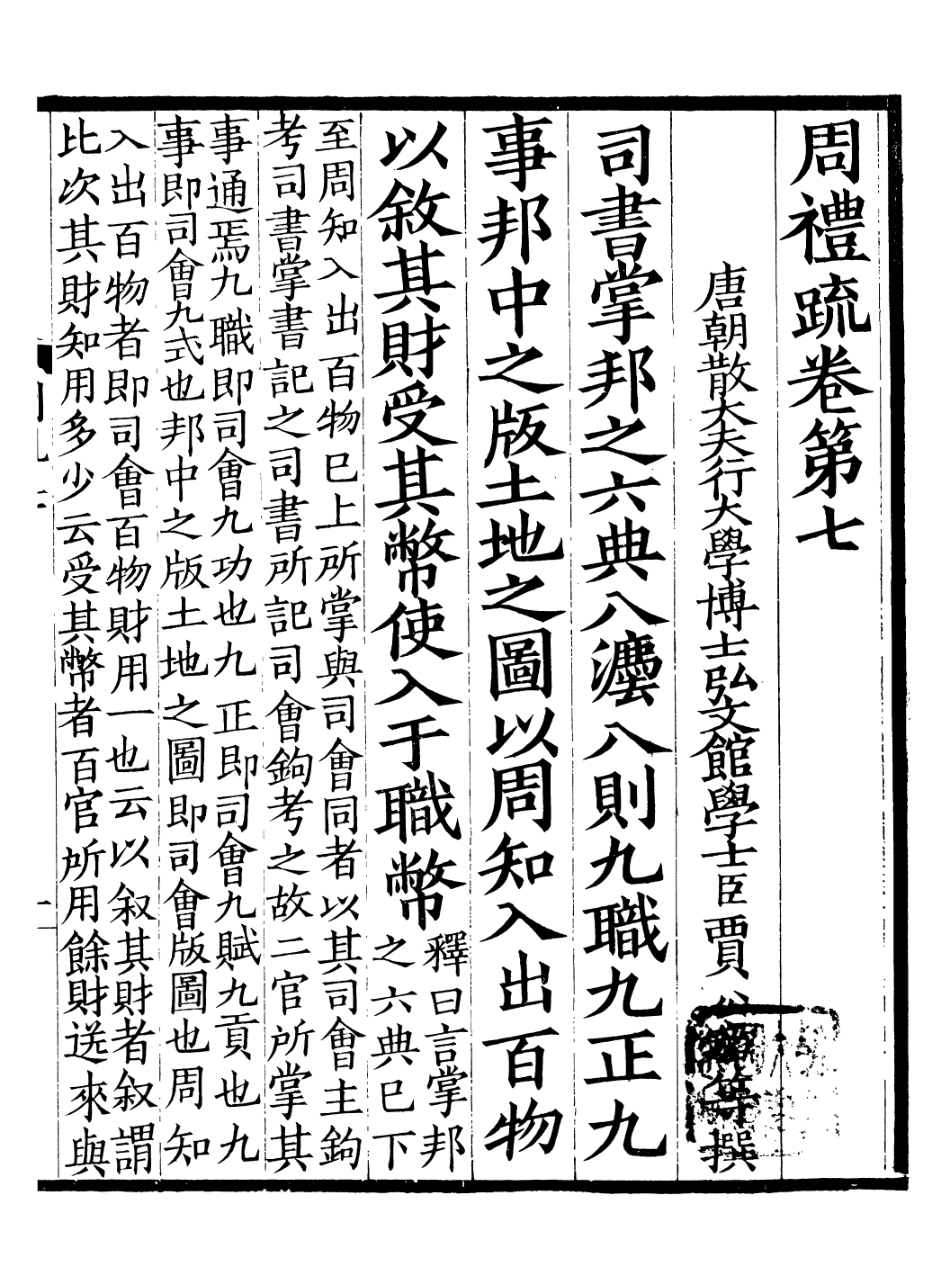 周禮疏卷第七
唐朝散大夫行大學博士弘文館學士臣賈公彥等撰
司書掌邦之六典八灋八則九職九正九
事邦中之版土地之圖以周知入出百物
以敘其財受其幣使入于職幣
釋曰言掌邦
之六典已下
至周知入出百物已上所掌與司會同者以其司會主鉤
考司書掌書記之司書所記司會鉤考之故二官所掌其
事通焉九職即司會九功也九正即司會九賦九貢也九
事即司會九式也邦中之版土地之圖即司會版圖也周知
入出百物者即司會百物財用一也云以叙其財者叙謂
比次其財知用多少云受其幣者百官所用餘財送來與